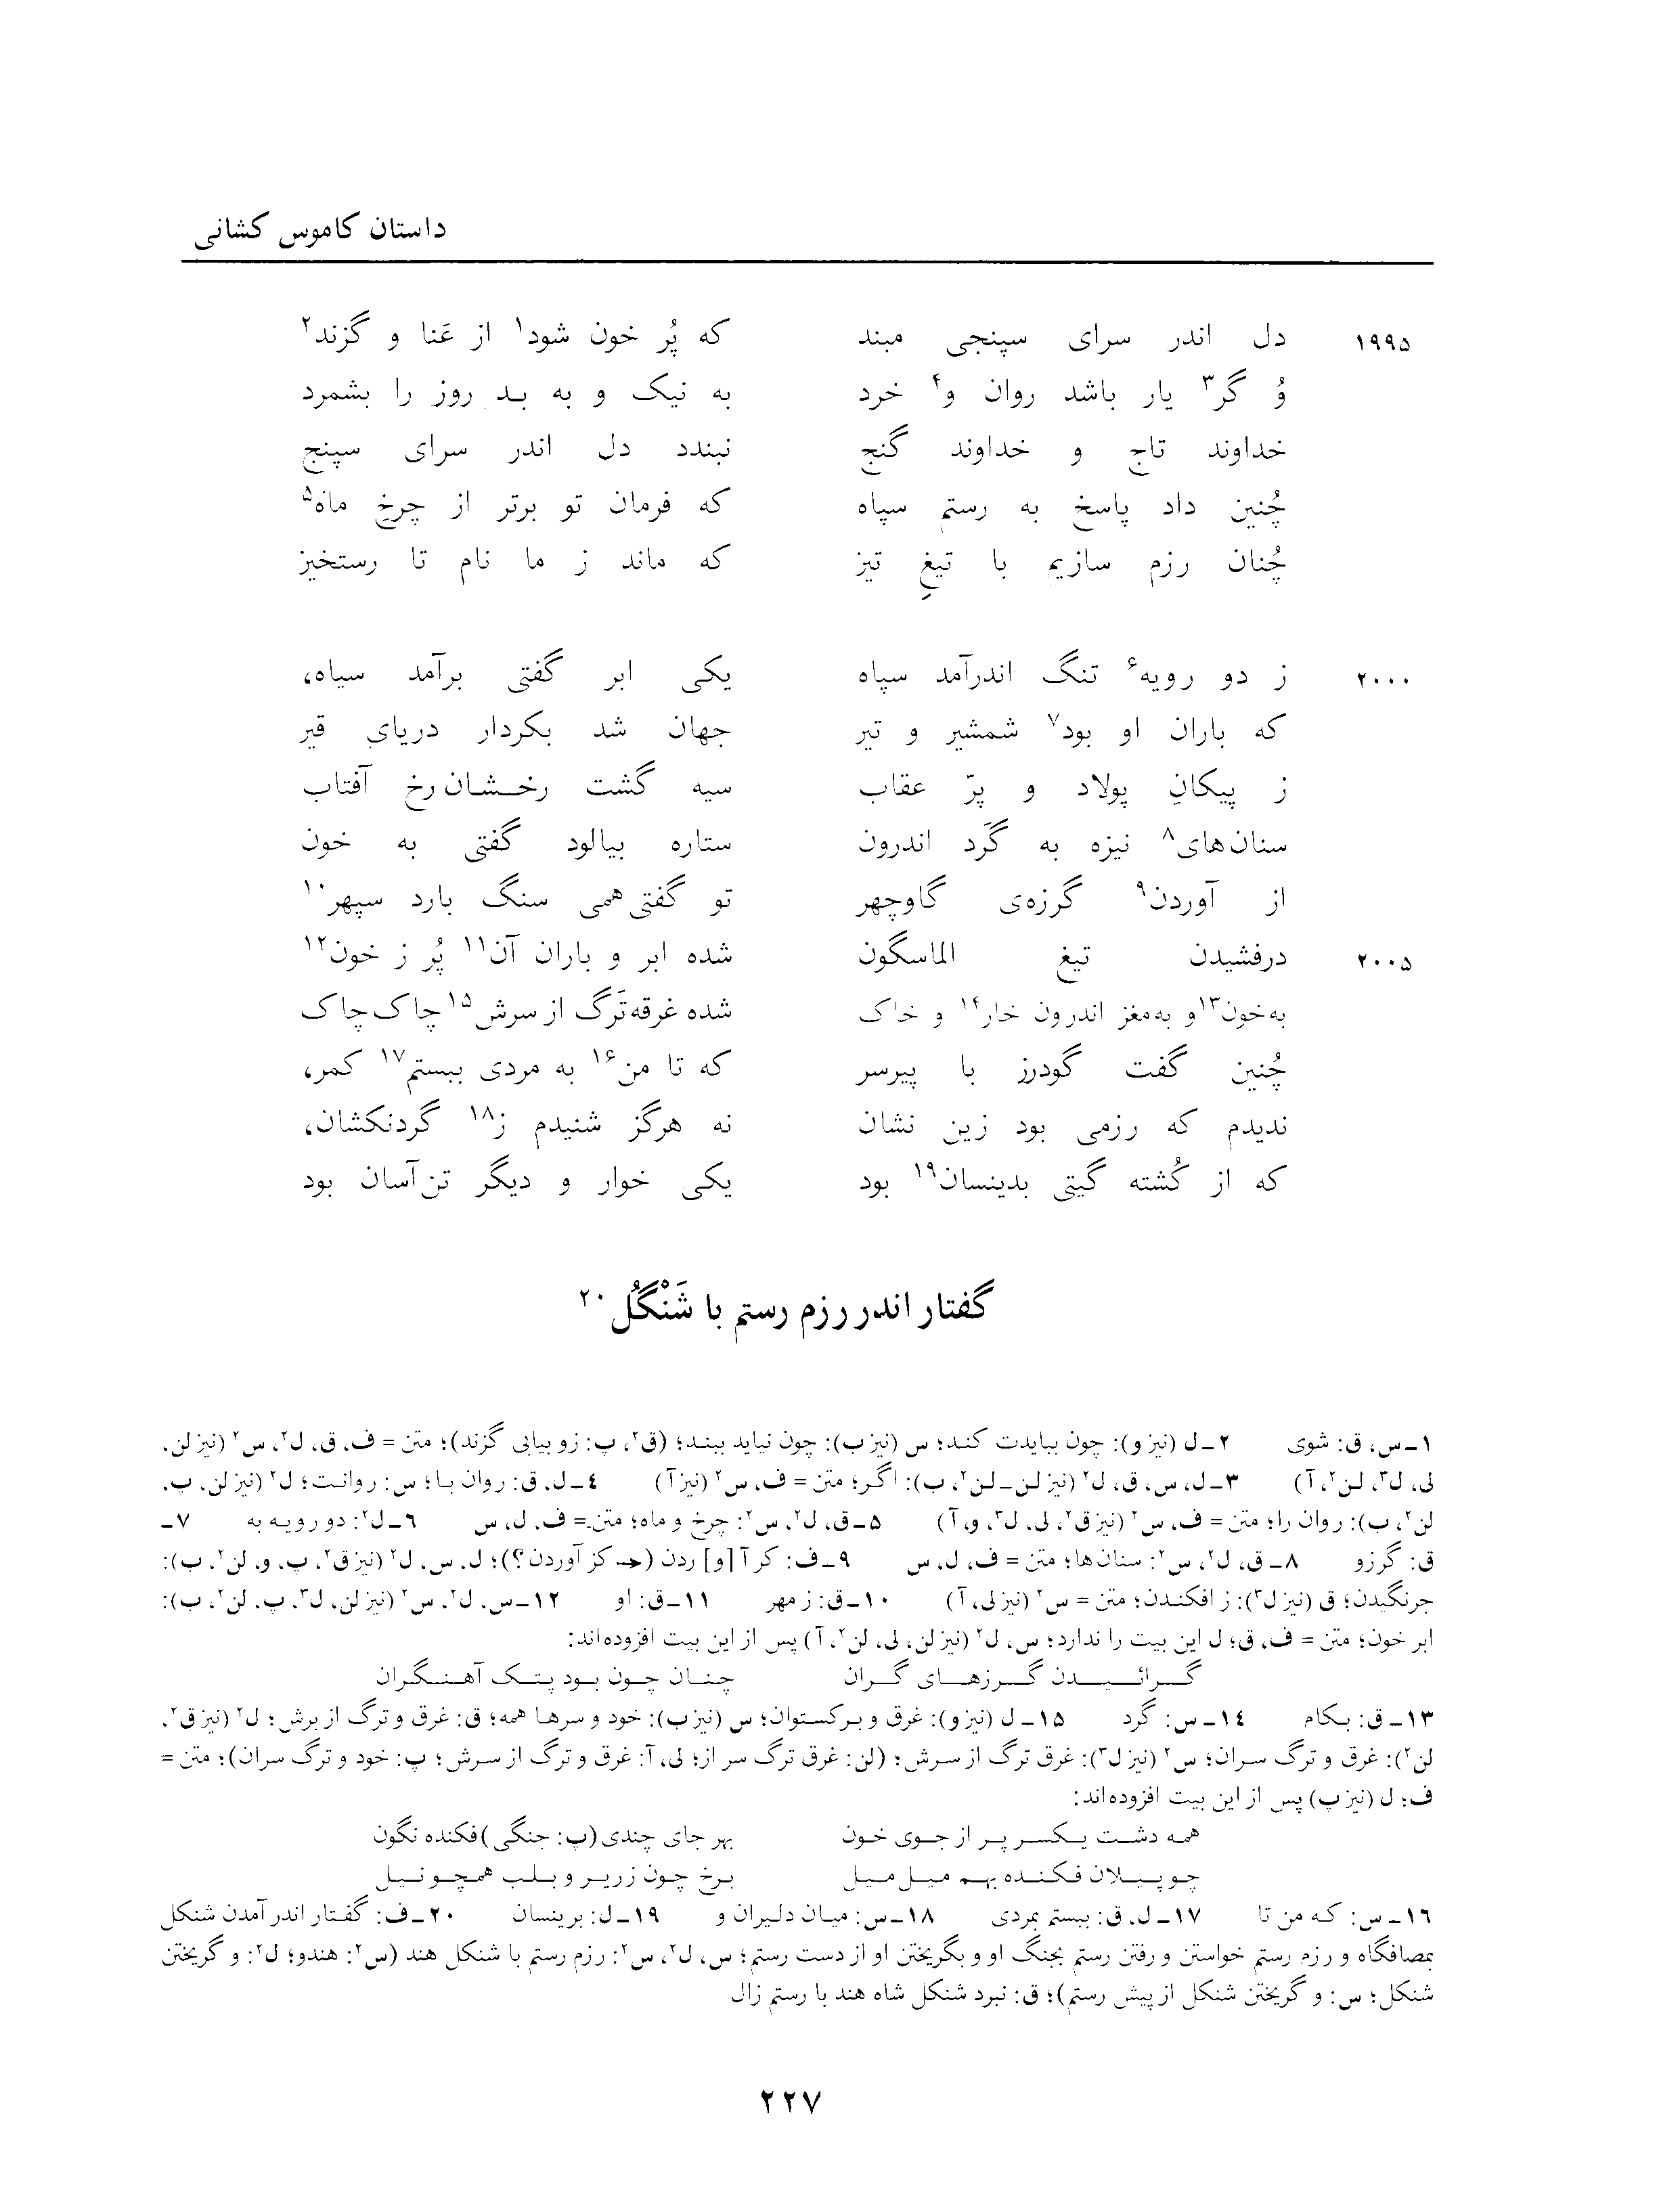 داستان کاموس کشانی
۱۹۹۵ دل اندر سرای سپنجی مبند که پُر خون شود۱ از عَنا و گزند۲
وُ گر۳ یار باشد روان و۴ خرد به نیک و به بد روز را بشمرد
خداوند تاج و خداوند گنج نبندد دل اندر سرای سپنج
چُنین داد پاسخ به رستم سپاه که فرمان تو برتر از چرخِ ماه۵
چُنان رزم سازیم با تیغِ تیز که ماند ز ما نام تا رستخیز
۲۰۰۰ ز دو رویه۶ تنگ اندرآمد سپاه یکی ابر گفتی برآمد سیاه،
که باران او بود۷ شمشیر و تیر جهان شد بکردار دریای قیر
ز پیکانِ پولاد و پرّ عقاب سیه گشت رخشان رخ آفتاب
سنان‌های۸ نیزه به گَرد اندرون ستاره بیالود گفتی به خون
از آوردن۹ گرزه‌ی گاوچهر تو گفتی همی سنگ بارد سپهر۱۰
۲۰۰۵ درفشیدن تیغ الماسگون شده ابر و باران آن۱۱ پُر ز خون۱۲
به‌خون۱۳ و به‌مغز اندرون خار۱۴ و خاک شده غرقه تَرگ از سرش۱۵ چاک چاک
چُنین گفت گودرز با پیرسر که تا من۱۶ به مردی ببستم۱۷ کمر،
ندیدم که رزمی بود زین نشان نه هرگز شنیدم ز۱۸ گردنکشان،
که از کُشته گیتی بدینسان۱۹ بود یکی خوار و دیگر تن‌آسان بود
گفتار اندر رزم رستم با شَنْگُل۲۰
۱ـ س، ق: شوی ۲ـ ل (نیز و): چون ببایدت کند؛ س (نیز ب): چون نیاید ببند؛ (ق۲، پ: زو بیابی گزند)؛ متن = ف، ق، ل۲، س۲ (نیز لن،
لی، ل۳، لن۲، آ) ۳ـ ل، س، ق، ل۲ (نیز لن ـ لن۲، ب): اگر؛ متن = ف، س۲ (نیز آ) ۴ـ ل، ق: روان با؛ س: روانت؛ ل۲ (نیز لن، پ،
لن۲، ب): روان را؛ متن = ف، س۲ (نیز ق۲، لی، ل۳، و، آ) ۵ـ ق، ل۲، س۲: چرخ و ماه؛ متن = ف، ل، س ۶ـ ل۲: دو رویه به ۷ـ
ق: گرزو ۸ـ ق، ل۲، س۲: سنان‌ها؛ متن = ف، ل، س ۹ـ ف: کرآ [و] ردن (← کز آوردن؟)؛ ل، س، ل۲ (نیز ق۲، پ، و، لن۲، ب):
جرنگیدن؛ ق (نیز ل۳): ز افکندن؛ متن = س۲ (نیز لی، آ) ۱۰ـ ق: ز مهر ۱۱ـ ق: او ۱۲ـ س، ل۲، س۲ (نیز لن، ل۳، پ، لن۲، ب):
ابر خون؛ متن = ف، ق؛ ل این بیت را ندارد؛ س، ل۲ (نیز لن، لی، لن۲، آ) پس از این بیت افزوده‌اند:
گرائیدن گرزهای گران چنان چون بود پتک آهنگران
۱۳ـ ق: بکام ۱۴ـ س: گرد ۱۵ـ ل (نیز و): غرق و برکستوان؛ س (نیز ب): خود و سرها همه؛ ق: غرق و ترگ از برش؛ ل۲ (نیز ق۲،
لن۲): غرق و ترگ سران؛ س۲ (نیز ل۳): غرق ترگ از سرش؛ (لن: غرق ترگ سر از؛ لی، آ: غرق و ترگ از سرش؛ پ: خود و ترگ سران)؛ متن =
ف؛ ل (نیز پ) پس از این بیت افزوده‌اند:
همه دشت یکسر پر از جوی خون بهر جای چندی (پ: جنگی) فکنده نگون
چو پیلان فکنده بهم میل میل برخ چون زریر و بلب همچو نیل
۱۶ـ س: که من تا ۱۷ـ ل، ق: ببستم بمردی ۱۸ـ س: میان دلیران و ۱۹ـ ل: برینسان ۲۰ـ ف: گفتار اندر آمدن شنکل
بمصافگاه و رزم رستم خواستن و رفتن رستم بجنگ او و بگریختن او از دست رستم؛ س، ل۲، س۲: رزم رستم با شنکل هند (س۲: هندو؛ ل۲: و گریختن
شنکل؛ س: و گریختن شنکل از پیش رستم)؛ ق: نبرد شنکل شاه هند با رستم زال
۲۲۷